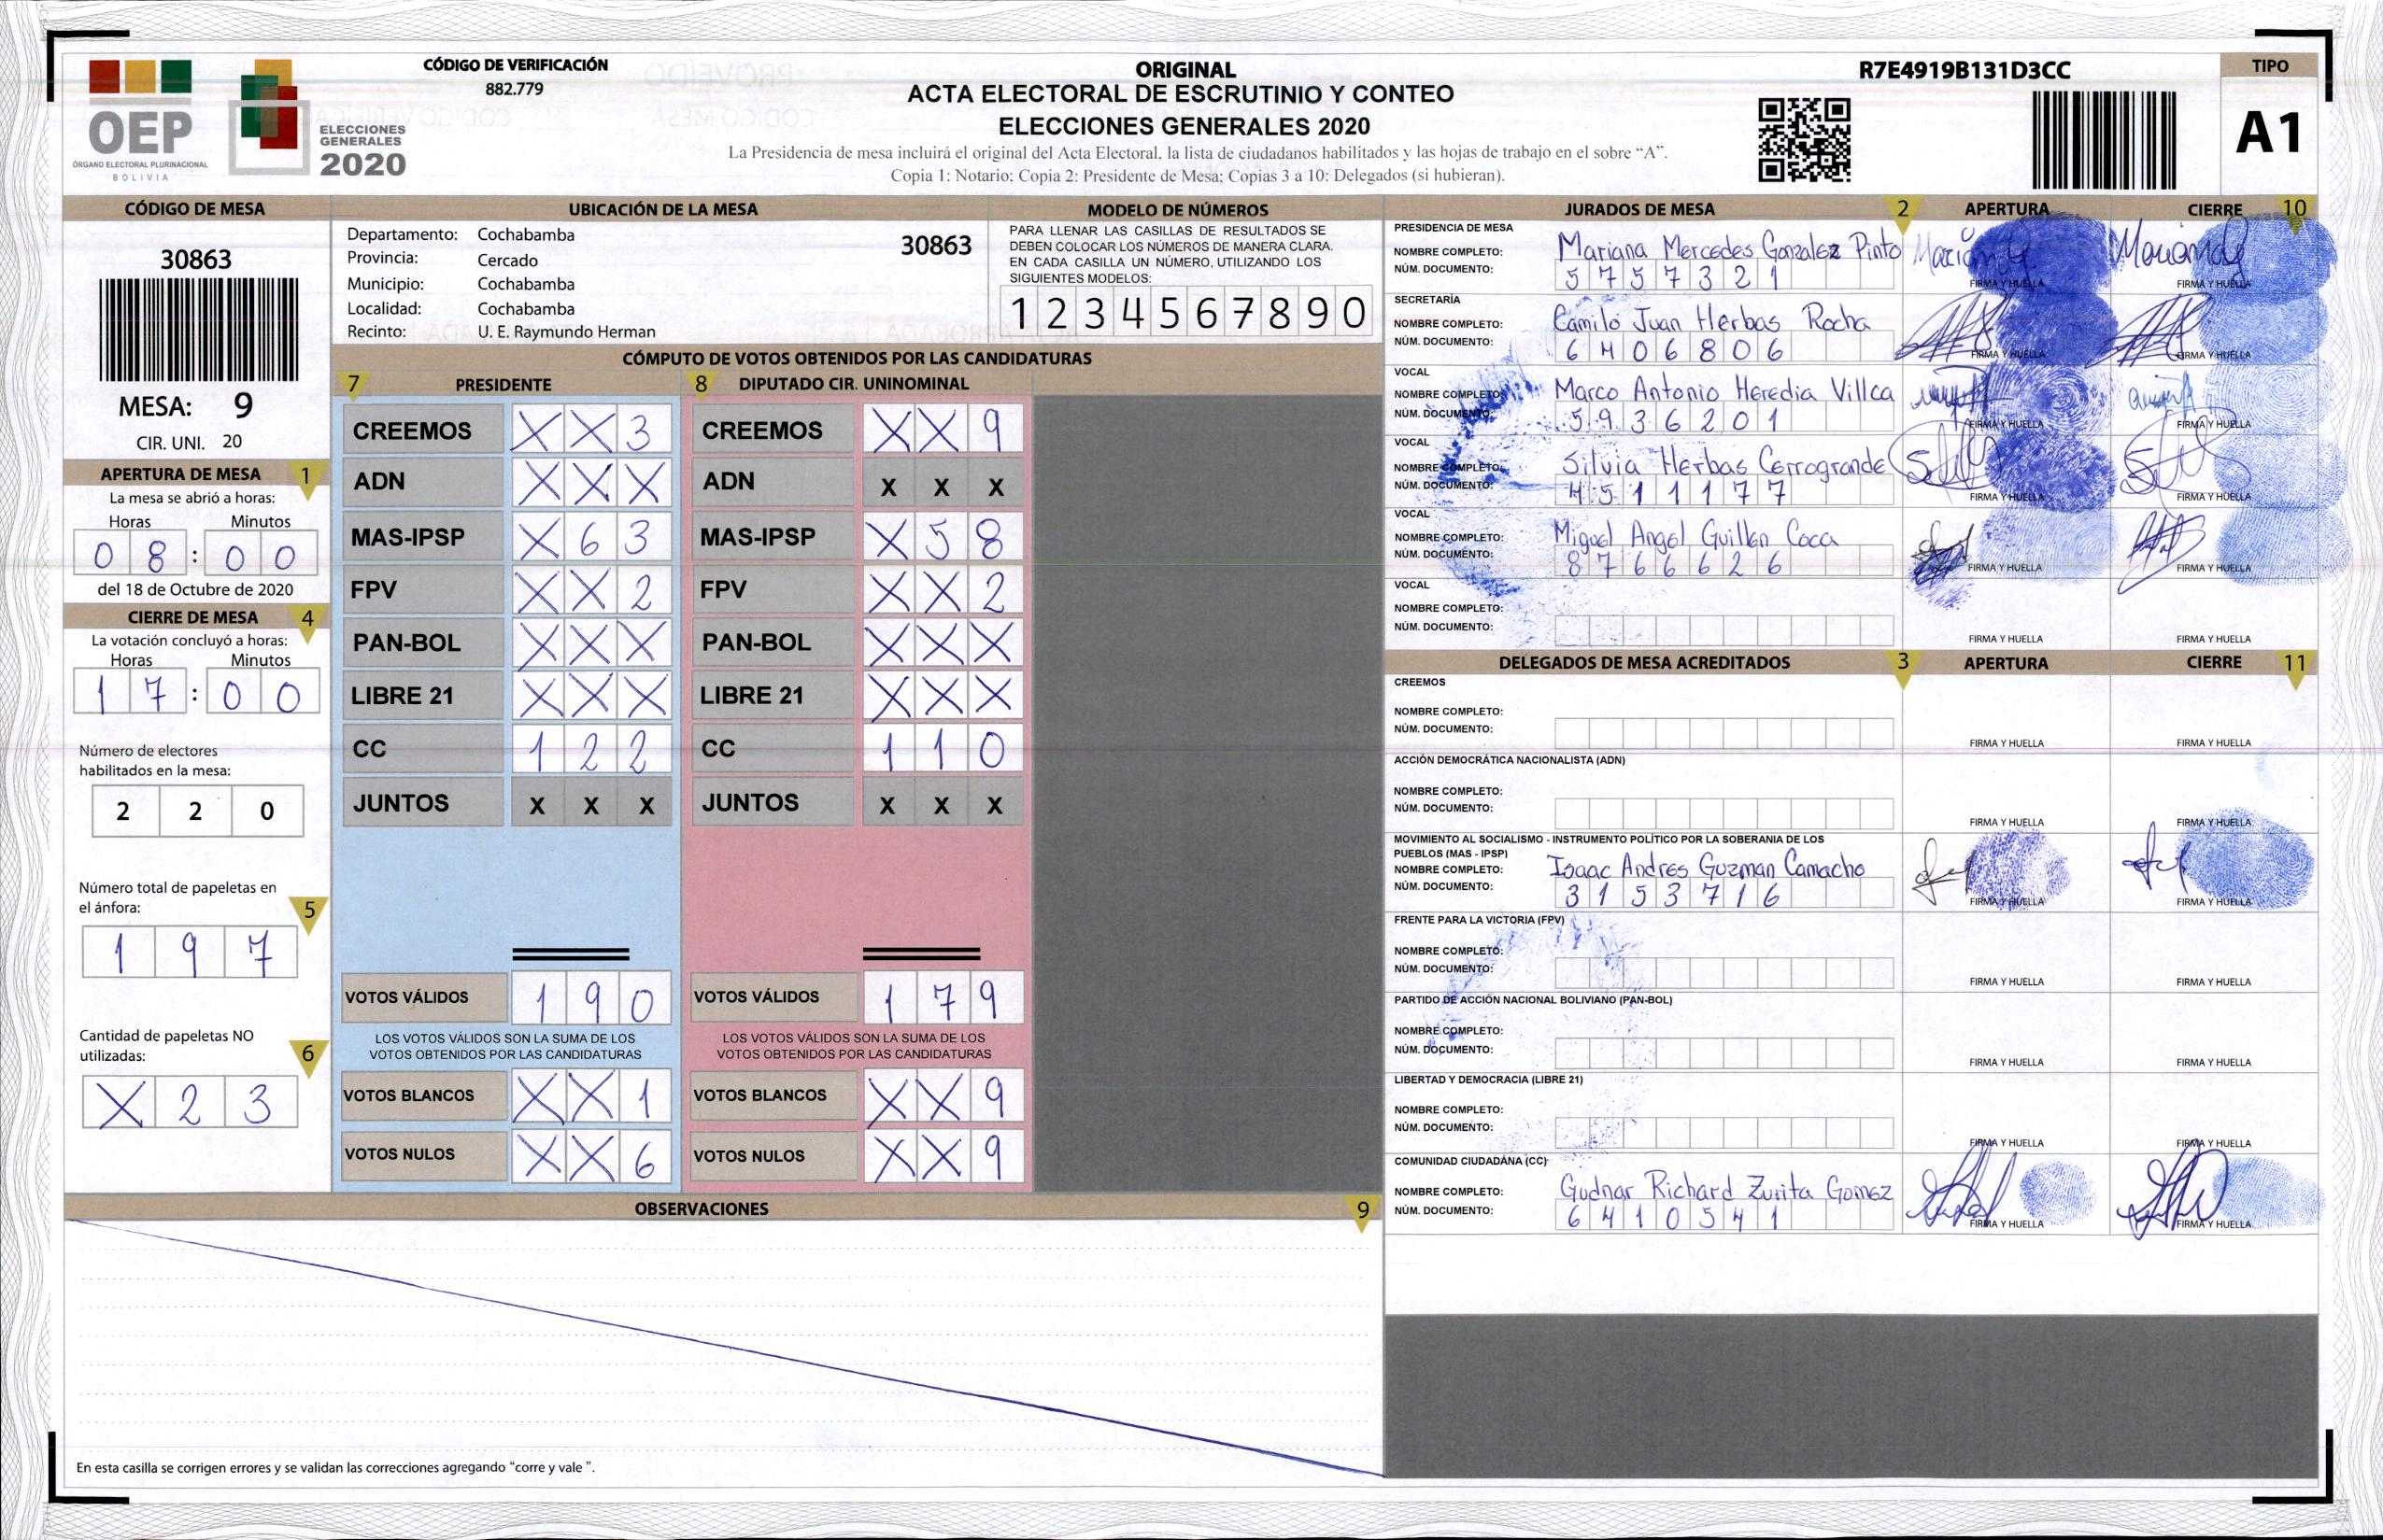 OEP
ÓRGANO ELECTORAL PLURINACIONAL
BOLIVIA
ELECCIONES
GENERALES
2020
CÓDIGO DE VERIFICACIÓN
882.779
ORIGINAL
ACTA ELECTORAL DE ESCRUTINIO Y CONTEO
ELECCIONES GENERALES 2020
La Presidencia de mesa incluirá el original del Acta Electoral, la lista de ciudadanos habilitados y las hojas de trabajo en el sobre “A”.
Copia 1: Notario; Copia 2: Presidente de Mesa; Copias 3 a 10: Delegados (si hubieran).
R7E4919B131D3CC
TIPO
A1
CÓDIGO DE MESA
30863
MESA: 9
CIR. UNI. 20
APERTURA DE MESA 1
La mesa se abrió a horas:
Horas Minutos
0 8 : 0 0
del 18 de Octubre de 2020
CIERRE DE MESA 4
La votación concluyó a horas:
Horas Minutos
1 7 : 0 0
Número de electores
habilitados en la mesa:
2 2 0
Número total de papeletas en
el ánfora: 5
1 9 7
Cantidad de papeletas NO
utilizadas: 6
X 2 3
UBICACIÓN DE LA MESA
Departamento: Cochabamba
30863
Provincia: Cercado
Municipio: Cochabamba
Localidad: Cochabamba
Recinto: U. E. Raymundo Herman
MODELO DE NÚMEROS
PARA LLENAR LAS CASILLAS DE RESULTADOS SE
DEBEN COLOCAR LOS NÚMEROS DE MANERA CLARA.
EN CADA CASILLA UN NÚMERO, UTILIZANDO LOS
SIGUIENTES MODELOS:
1 2 3 4 5 6 7 8 9 0
CÓMPUTO DE VOTOS OBTENIDOS POR LAS CANDIDATURAS
7 PRESIDENTE 8 DIPUTADO CIR. UNINOMINAL
CREEMOS X X 3 CREEMOS X X 9
ADN X X X ADN X X X
MAS-IPSP X 6 3 MAS-IPSP X 5 8
FPV X X 2 FPV X X 2
PAN-BOL X X X PAN-BOL X X X
LIBRE 21 X X X LIBRE 21 X X X
CC 1 2 2 CC 1 1 0
JUNTOS X X X JUNTOS X X X
VOTOS VÁLIDOS 1 9 0 VOTOS VÁLIDOS 1 7 9
LOS VOTOS VÁLIDOS SON LA SUMA DE LOS LOS VOTOS VÁLIDOS SON LA SUMA DE LOS
VOTOS OBTENIDOS POR LAS CANDIDATURAS VOTOS OBTENIDOS POR LAS CANDIDATURAS
VOTOS BLANCOS X X 1 VOTOS BLANCOS X X 9
VOTOS NULOS X X 6 VOTOS NULOS X X 9
OBSERVACIONES 9
En esta casilla se corrigen errores y se validan las correcciones agregando “corre y vale ”.
JURADOS DE MESA 2 APERTURA CIERRE 10
PRESIDENCIA DE MESA
NOMBRE COMPLETO: Mariana Mercedes Gonzalez Pinto
NÚM. DOCUMENTO: 5 7 5 7 3 2 1
FIRMA Y HUELLA FIRMA Y HUELLA
SECRETARÍA
NOMBRE COMPLETO: Camilo Juan Herbas Rocha
NÚM. DOCUMENTO: 6 4 0 6 8 0 6
FIRMA Y HUELLA FIRMA Y HUELLA
VOCAL
NOMBRE COMPLETO: Marco Antonio Heredia Villca
NÚM. DOCUMENTO: 5 9 3 6 2 0 1
FIRMA Y HUELLA FIRMA Y HUELLA
VOCAL
NOMBRE COMPLETO: Silvia Herbas Cerrogrande
NÚM. DOCUMENTO: 4 5 1 1 1 7 7
FIRMA Y HUELLA FIRMA Y HUELLA
VOCAL
NOMBRE COMPLETO: Miguel Angel Guillen Coca
NÚM. DOCUMENTO: 8 7 6 6 6 2 6
FIRMA Y HUELLA FIRMA Y HUELLA
VOCAL
NOMBRE COMPLETO:
NÚM. DOCUMENTO:
FIRMA Y HUELLA FIRMA Y HUELLA
DELEGADOS DE MESA ACREDITADOS 3 APERTURA CIERRE 11
CREEMOS
NOMBRE COMPLETO:
NÚM. DOCUMENTO:
FIRMA Y HUELLA FIRMA Y HUELLA
ACCIÓN DEMOCRÁTICA NACIONALISTA (ADN)
NOMBRE COMPLETO:
NÚM. DOCUMENTO:
FIRMA Y HUELLA FIRMA Y HUELLA
MOVIMIENTO AL SOCIALISMO - INSTRUMENTO POLÍTICO POR LA SOBERANIA DE LOS
PUEBLOS (MAS - IPSP)
NOMBRE COMPLETO: Isaac Andres Guzman Camacho
NÚM. DOCUMENTO: 3 1 5 3 7 1 6
FIRMA Y HUELLA FIRMA Y HUELLA
FRENTE PARA LA VICTORIA (FPV)
NOMBRE COMPLETO:
NÚM. DOCUMENTO:
FIRMA Y HUELLA FIRMA Y HUELLA
PARTIDO DE ACCIÓN NACIONAL BOLIVIANO (PAN-BOL)
NOMBRE COMPLETO:
NÚM. DOCUMENTO:
FIRMA Y HUELLA FIRMA Y HUELLA
LIBERTAD Y DEMOCRACIA (LIBRE 21)
NOMBRE COMPLETO:
NÚM. DOCUMENTO:
FIRMA Y HUELLA FIRMA Y HUELLA
COMUNIDAD CIUDADANA (CC)
NOMBRE COMPLETO: Gudnar Richard Zurita Gomez
NÚM. DOCUMENTO: 6 4 1 0 5 4 1
FIRMA Y HUELLA FIRMA Y HUELLA